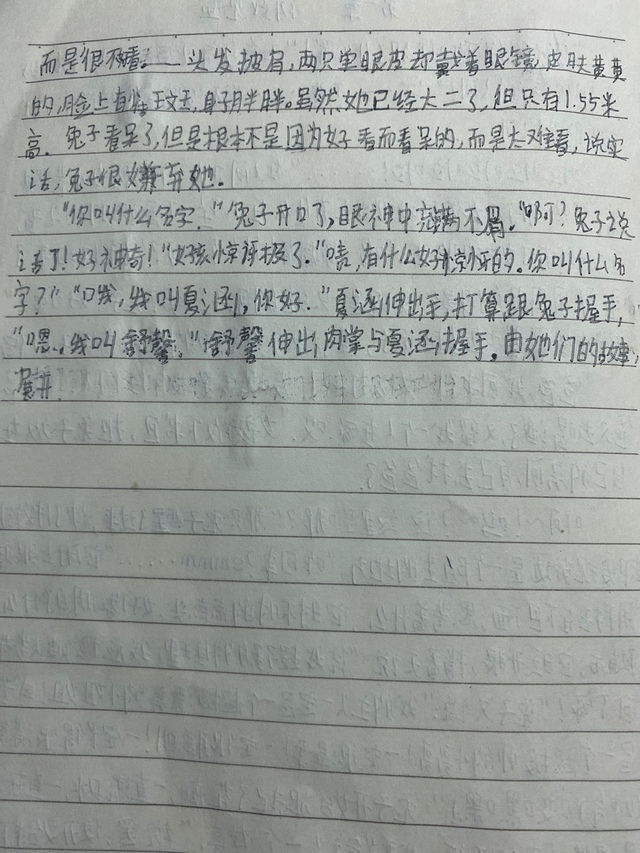 而是很不看：一头发披肩，两只单眼皮却戴着眼镜，皮肤黄黄
的，脸上有些斑，身子胖胖。虽然她已经大二了，但只有1.55米
高。兔子看呆了，但是根本不是因为好看而看呆的，而是太难看，说实
话，兔子很嫌弃她。
“你叫什么名字。”兔子开口了，眼神中充满不屑。“啊？兔子说
话了！好神奇！”女孩惊讶极了。“啧，有什么好惊讶的。你叫什么名
字？”“哦，我叫夏涵，你好。”夏涵伸出手，打算跟兔子握手，
“嗯，我叫舒馨。”舒馨伸出肉掌与夏涵握手。由她们的故事，
展开